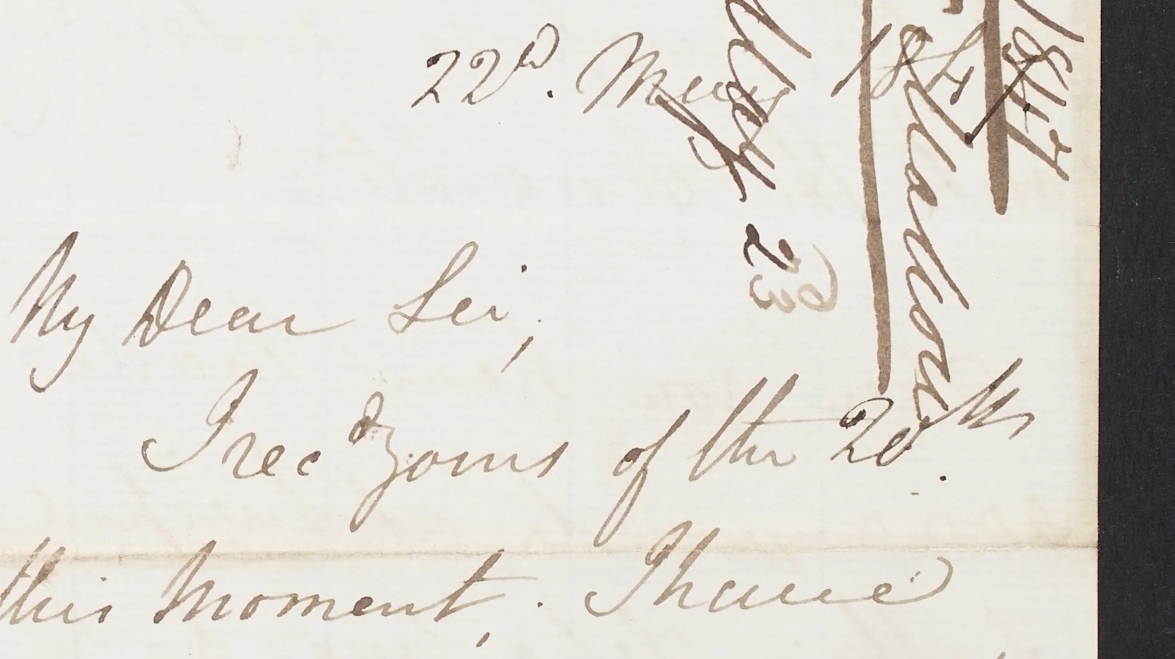 22ᵈ. May 1847
My Dear Sir,
I recᵈ yours of the 20ᵗʰ.
this moment,. I have
1847
May 23